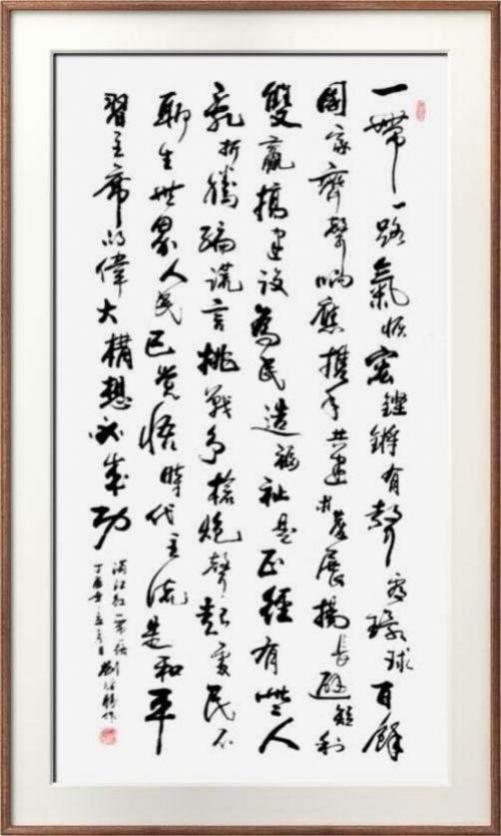 一帶一路氣恢宏鏗鏘有聲看環球百餘
國家齊聲响應携手共建求發展揚長避短利
雙贏搞建設為民造福祉是正經有些人
亂折騰編謊言挑戰爭槍炮聲起處民不
聊生世界人民已覺悟時代主流是和平
習主席的偉大構想必成功
滿江紅一帶
丁酉年月劉勝作